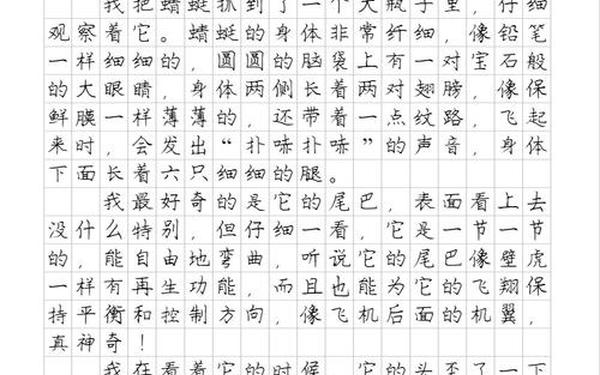 我把蜻蜓抓到了一个大瓶子里，仔细
观察着它。蜻蜓的身体非常纤细，像铅笔
一样细细的，圆圆的脑袋上有一对宝石般
的大眼睛，身体两侧长着两对翅膀，像保
鲜膜一样薄薄的，还带着一点纹路，飞起
来时，会发出“扑哧扑哧”的声音，身体
下面长着六只细细的腿。
我最好奇的是它的尾巴，表面看上去
没什么特别，但仔细一看，它是一节一节
的，能自由地弯曲，听说它的尾巴像壁虎
一样有再生功能，而且也能为它的飞翔保
持平衡和控制方向，像飞机后面的机翼，
真神奇！
我在看着它的时候，它的头歪了一下